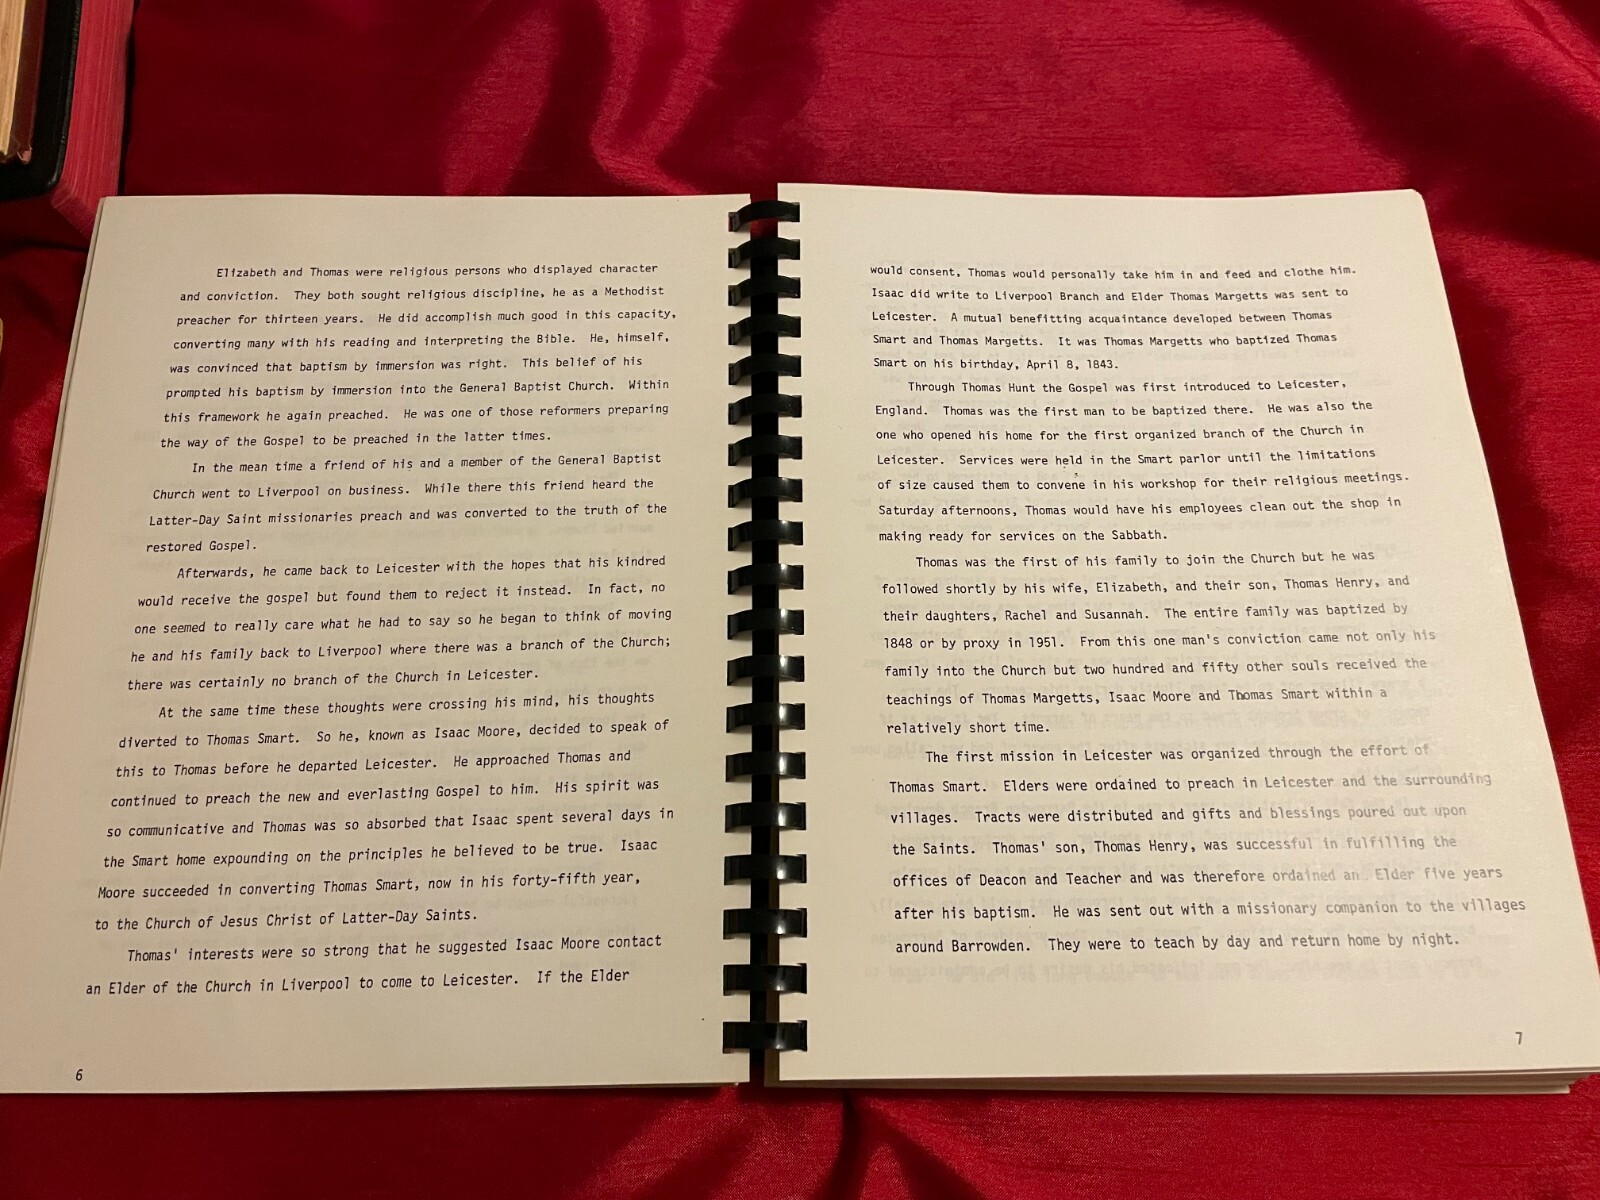 Elizabeth and Thomas were religious persons who displayed character
and conviction. They both sought religious discipline, he as a Methodist
preacher for thirteen years. He did accomplish much good in this capacity,
converting many with his reading and interpreting the Bible. He, himself,
was convinced that baptism by immersion was right. This belief of his
prompted his baptism by immersion into the General Baptist Church. Within
this framework he again preached. He was one of those reformers preparing
the way of the Gospel to be preached in the latter times.
In the mean time a friend of his and a member of the General Baptist
Church went to Liverpool on business. While there this friend heard the
Latter-Day Saint missionaries preach and was converted to the truth of the
restored Gospel.
Afterwards, he came back to Leicester with the hopes that his kindred
would receive the gospel but found them to reject it instead. In fact, no
one seemed to really care what he had to say so he began to think of moving
he and his family back to Liverpool where there was a branch of the Church;
there was certainly no branch of the Church in Leicester.
At the same time these thoughts were crossing his mind, his thoughts
diverted to Thomas Smart. So he, known as Isaac Moore, decided to speak of
this to Thomas before he departed Leicester. He approached Thomas and
continued to preach the new and everlasting Gospel to him. His spirit was
so communicative and Thomas was so absorbed that Isaac spent several days in
the Smart home expounding on the principles he believed to be true. Isaac
Moore succeeded in converting Thomas Smart, now in his forty-fifth year,
to the Church of Jesus Christ of Latter-Day Saints.
Thomas' interests were so strong that he suggested Isaac Moore contact
an Elder of the Church in Liverpool to come to Leicester. If the Elder
6
would consent, Thomas would personally take him in and feed and clothe him.
Isaac did write to Liverpool Branch and Elder Thomas Margetts was sent to
Leicester. A mutual benefitting acquaintance developed between Thomas
Smart and Thomas Margetts. It was Thomas Margetts who baptized Thomas
Smart on his birthday, April 8, 1843.
Through Thomas Hunt the Gospel was first introduced to Leicester,
England. Thomas was the first man to be baptized there. He was also the
one who opened his home for the first organized branch of the Church in
Leicester. Services were held in the Smart parlor until the limitations
of size caused them to convene in his workshop for their religious meetings.
Saturday afternoons, Thomas would have his employees clean out the shop in
making ready for services on the Sabbath.
Thomas was the first of his family to join the Church but he was
followed shortly by his wife, Elizabeth, and their son, Thomas Henry, and
their daughters, Rachel and Susannah. The entire family was baptized by
1848 or by proxy in 1951. From this one man's conviction came not only his
family into the Church but two hundred and fifty other souls received the
teachings of Thomas Margetts, Isaac Moore and Thomas Smart within a
relatively short time.
The first mission in Leicester was organized through the effort of
Thomas Smart. Elders were ordained to preach in Leicester and the surrounding
villages. Tracts were distributed and gifts and blessings poured out upon
the Saints. Thomas' son, Thomas Henry, was successful in fulfilling the
offices of Deacon and Teacher and was therefore ordained an Elder five years
after his baptism. He was sent out with a missionary companion to the villages
around Barrowden. They were to teach by day and return home by night.
7